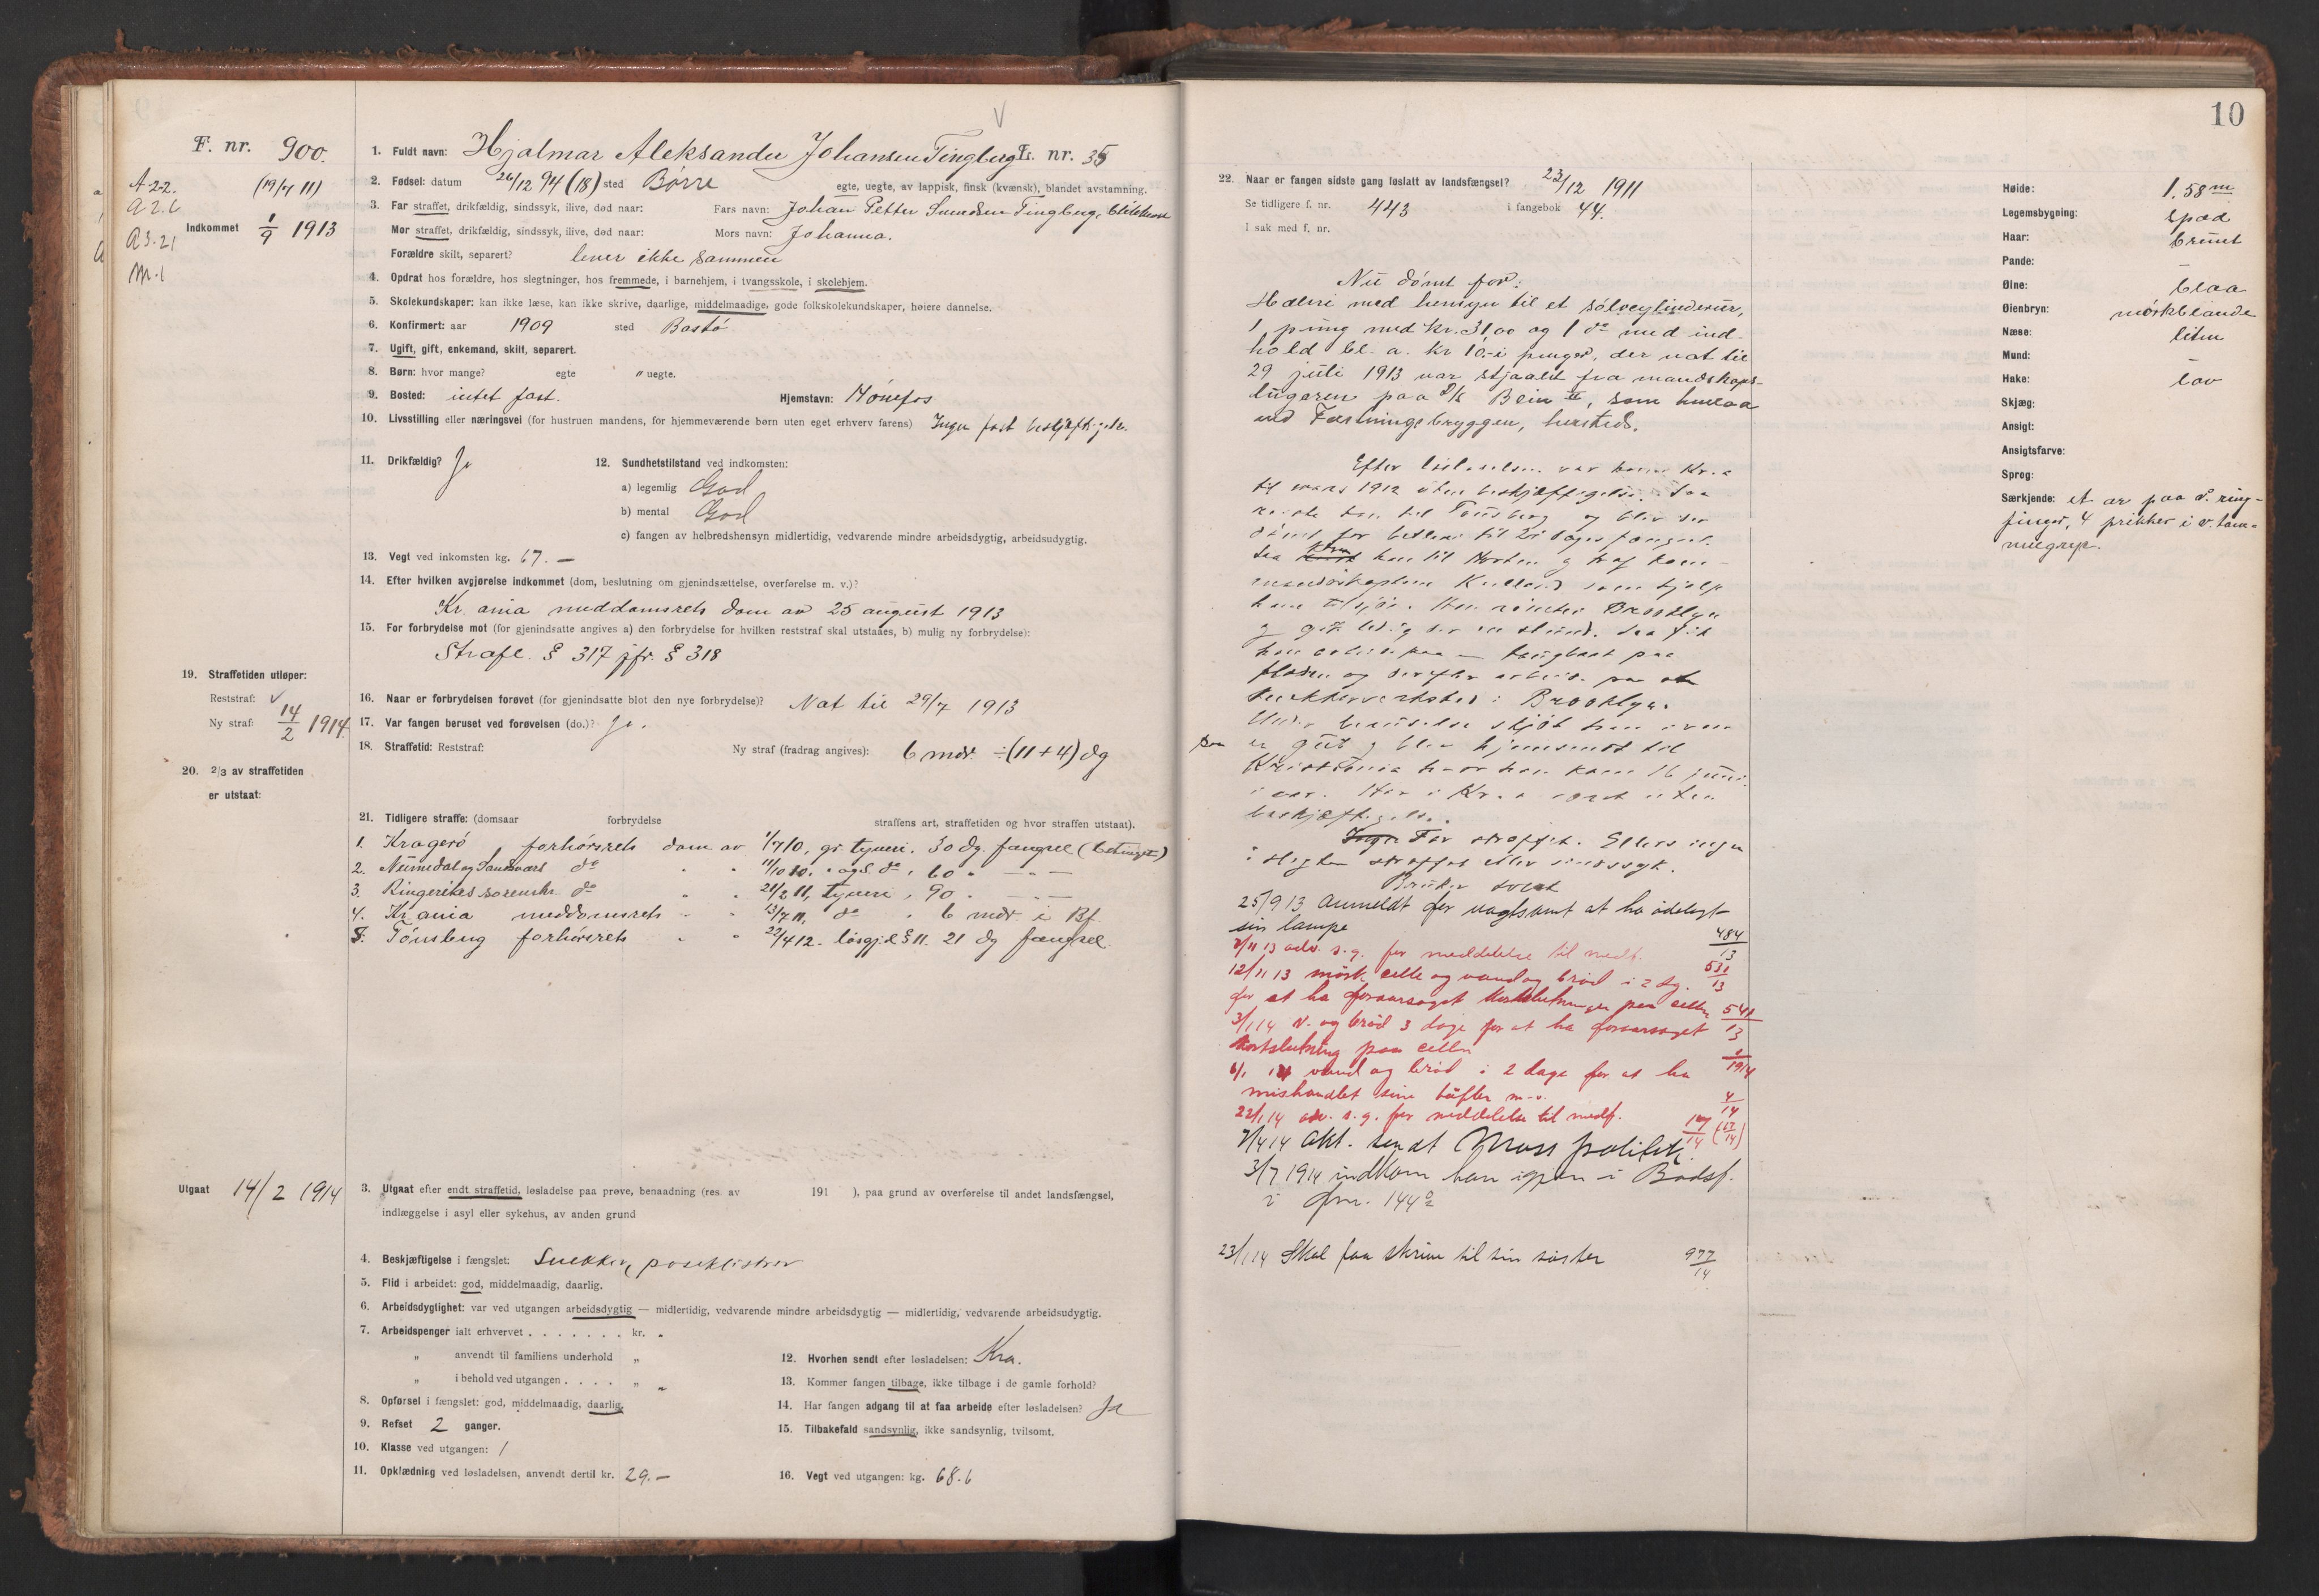 F. nr. 900.
A 2-2. (19/7 11)
a 2. 6
Indkommet 1/9 1913
a 3. 21
M. 1
1. Fuldt navn: Hjalmar Aleksander Johansen Tingberg Fr. nr. 35
2. Fødsel: datum 26/12 94 (18) sted Børre egte, uegte, av lappisk, finsk (kvænsk), blandet avstamning.
3. Far straffet, drikfældig, sindssyk, ilive, død naar: Fars navn: Johan Petter Svendsen Tingberg,
Mor straffet, drikfældig, sindssyk, ilive, død naar: Mors navn: Johanna.
Forældre skilt, separert? lever ikke sammen
4. Opdrat hos forældre, hos slegtninger, hos fremmede, i barnehjem, i tvangsskole, i skolehjem.
5. Skolekundskaper: kan ikke læse, kan ikke skrive, daarlige, middelmaadige, gode folkskolekundskaper, høiere dannelse.
6. Konfirmert: aar 1909 sted Bastø
7. Ugift, gift, enkemand, skilt, separert.
8. Børn: hvor mange? egte " uegte.
9. Bosted: intet fast. Hjemstavn: Hønefos
10. Livsstilling eller næringsvei (for hustruen mandens, for hjemmeværende børn uten eget erhverv farens) Ingen fast beskjæftigelse.
11. Drikfældig? Ja
12. Sundhetstilstand ved indkomsten:
a) legemlig God
b) mental God
c) fangen av helbredshensyn midlertidig, vedvarende mindre arbeidsdygtig, arbeidsudygtig.
13. Vegt ved inkomsten kg. 67. –
14. Efter hvilken avgjørelse indkommet (dom, beslutning om gjenindsættelse, overførelse m. v.)?
Kr.ania meddomsrets dom av 25 august 1913
15. For forbrydelse mot (for gjenindsatte angives a) den forbrydelse for hvilken reststraf skal utstaaes, b) mulig ny forbrydelse):
Strafl. § 317 jfr. § 318
19. Straffetiden utløper:
Reststraf: √
Ny straf: 14/2 1914.
16. Naar er forbrydelsen forøvet (for gjenindsatte blot den nye forbrydelse)? Nat til 29/7 1913
17. Var fangen beruset ved forøvelsen (do.)? Ja.
18. Straffetid: Reststraf: Ny straf (fradrag angives): 6 mdr. ÷ (11 + 4) dg
20. 2/3 av straffetiden
er utstaat:
21. Tidligere straffe: (domsaar forbrydelse straffens art, straffetiden og hvor straffen utstaat).
1. Kragerø forhørsrets dom av 1/7 10, gr. tyveri. 30 dg. fængsel (betinget)
2. Numedal og Sandsvær do " " 11/10 10. " og s. do , 60 " – " –
3. Ringerikes sorenskr. do " " 21/2 11, tyveri , 90 " – " –
4. Kr.ania meddomsrets " " 13/7 11, do " 6 mdr. i Bf.
5. Tønsberg forhørsrets " " 22/4 12. løsgj.l. § 11. 21 dg fængsel.
Utgaat 14/2 1914
3. Utgaat efter endt straffetid, løsladelse paa prøve, benaadning (res. av 191 ), paa grund av overførelse til andet landsfængsel,
indlæggelse i asyl eller sykehus, av anden grund
4. Beskjæftigelse i fængslet: Snekker, poseklistrer
5. Flid i arbeidet: god, middelmaadig, daarlig.
6. Arbeidsdygtighet: var ved utgangen arbeidsdygtig — midlertidig, vedvarende mindre arbeidsdygtig — midlertidig, vedvarende arbeidsudygtig.
7. Arbeidspenger ialt erhvervet . . . . . . . kr. "
" anvendt til familiens underhold "
" i behold ved utgangen . . . . " "
8. Opførsel i fængslet: god, middelmaadig, daarlig.
9. Refset 2 ganger.
10. Klasse ved utgangen: 1
11. Opklædning ved løsladelsen, anvendt dertil kr. 29. –
12. Hvorhen sendt efter løsladelsen: Kra.
13. Kommer fangen tilbage, ikke tilbage i de gamle forhold?
14. Har fangen adgang til at faa arbeide efter løsladelsen? Ja
15. Tilbakefald sandsynlig, ikke sandsynlig, tvilsomt.
16. Vegt ved utgangen: kg. 68.6
10
22. Naar er fangen sidste gang løslatt av landsfængsel? 23/12 1911
Se tidligere f. nr. 443 i fangebok 44.
I sak med f. nr.
Nu dømt for:
Hæleri med hensyn til et sølvcylinderur,
1 pung med kr. 31,00 og 1 do med ind-
hold bl. a. kr 10.- i penger, der nat til
29 juli 1913 var stjaalet fra mandskaps-
lugaren paa D/S Bein II, som henlaa
ved Fæstningsbryggen, hersteds.
Efter løslatelsen var han i Kr.a
til mars 1912 uten beskjæftigelse. Saa
reiste han til Tønsberg og blev der
dømt for betleri til 21 dages fængsel.
Saa kom han til Horten og traf kom-
mandørkaptein som hjalp
ham tilsjøs. Han rømte i Brooklyn
og gik ledig der en stund. Saa fik
han arbeide paa
flaaden og derefter arbeide paa et
snekkerverksted i Brooklyn.
Under beruselse skjøt han
paa en gut og blev hjemsendt til
Kristiania hvor han kom 16 juni
i aar. Har i Kr.a været uten
beskjæftigelse.
Far straffet. Ellers ingen
i slegten straffet eller sindssyk.
Bruker tobak
25/9 13 anmeldt for uagtsomt at ha ødelagt
sin lampe 484/13
7/11 13 adv. s. g. for meddelelse til medf. 531/13
12/11 13 mørk celle og vand og brød i 2 dg.
for at ha foraarsaget kortslutninger paa cellen 541/13
3/1 14 v. og brød 3 dage for at ha foraarsaget
kortslutning paa cellen 1/1914
6/1 14 vand og brød i 2 dage for at ha
mishandlet sine tøfler m. v. 4/14
22/1 14 adv. s. g. for meddelelse til medf. 147/14 (67/14)
7/4 14 Akt. sendt Moss politik.
3/7 1914 indkom han igjen i Bodsf.
i fnr. 1442
23/1 14 Skal faa skrive til sin søster 977/14
Høide: 1.58 m
Legemsbygning: spæd
Haar: brunt
Pande: –
Øine: blaa
Øienbryn: mørkblande
Næse: liten
Mund: –
Hake: lav
Skjæg:
Ansigt:
Ansigtsfarve:
Sprog:
Særkjende: et ar paa v. ring-
finger, 4 prikker i v. tom-
melgrep.